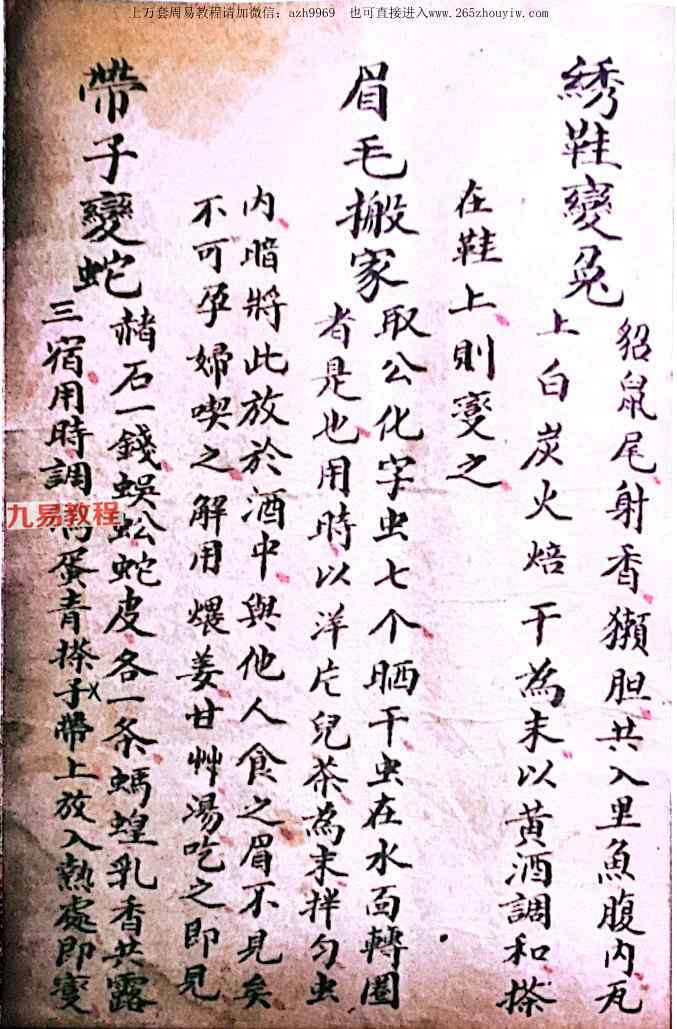 上万套周易教程请加微信：azh9969 也可直接进入www.265zhouyiw.com
綉鞋變兔
貂鼠尾射香獺胆共入里魚腹内瓦
上白炭火焙干為末以黄酒調和搽
在鞋上則變之
眉毛搬家
取公化字虫七个晒干虫在水面轉圈
者是也用時以洋片兒茶為末拌匀虫
内暗將此放於酒中與他人食之眉不見矣
不可孕婦喫之解用煨姜甘艸湯吃之即見
帶子變蛇
赭石一錢蜈蚣蛇皮各一条螞蝗乳香共露
三宿用時調蛋青搽子帶上放入熱處即变
九易教程